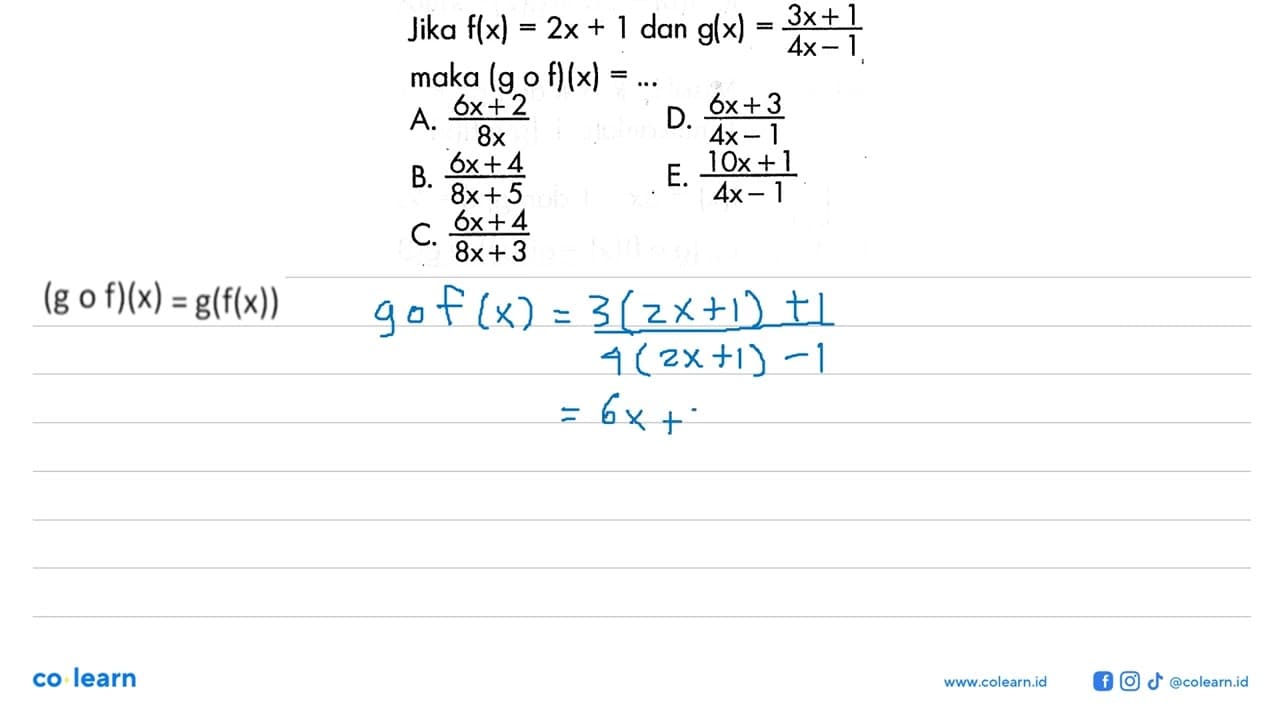 Jika f(x) = 2x + 1 dan g(x) = (3x + 1)/(4x – 1),
maka (g o f)(x) = ...
A. (6x + 2)/(8x)
D. (6x + 3)/(4x – 1)
B. (6x + 4)/(8x + 5)
E. (10x + 1)/(4x – 1)
C. (6x + 4)/(8x + 3)
(g o f)(x) = g(f(x))
g o f (x) = 3(2x+1) +1
4(2x+1) -1
= 6x +
co·learn
www.colearn.id
@colearn.id